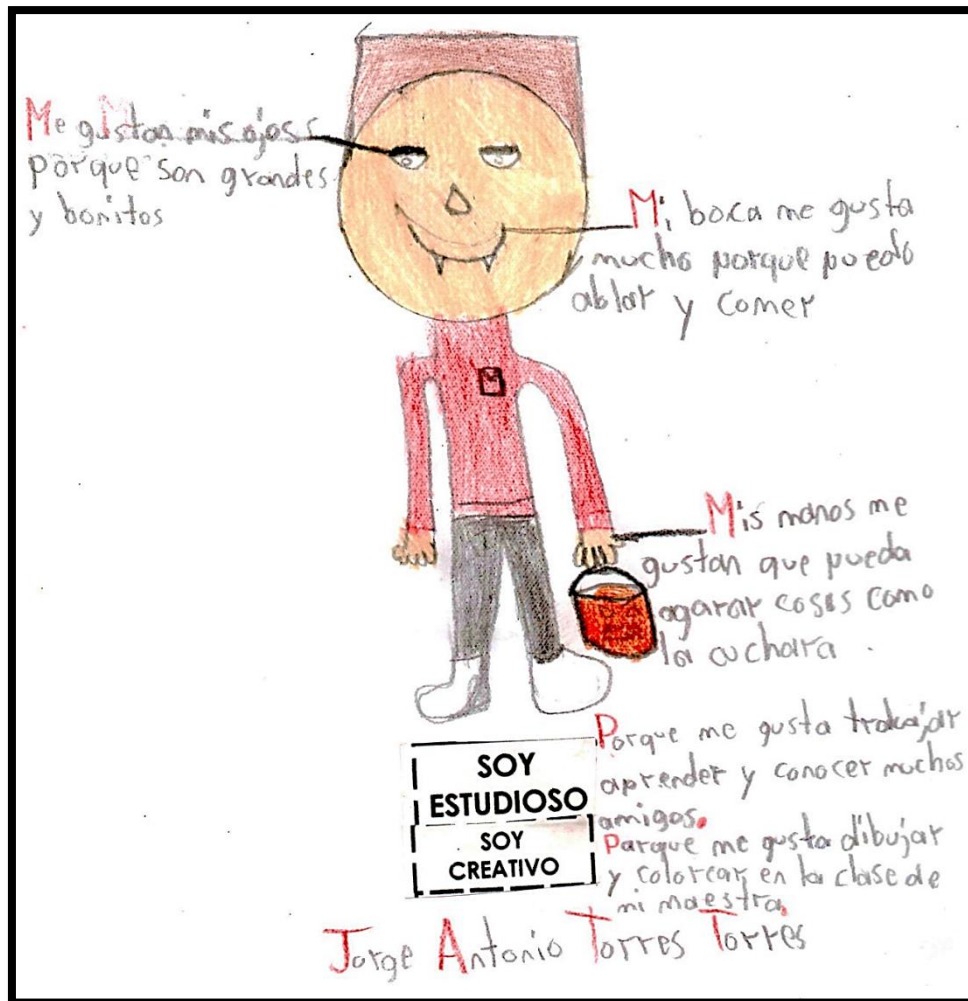 Me gustan mis ojos
porque son grandes
y bonitos
Mi boca me gusta
mucho porque puedo
ablar y comer
Mis manos me
gustan que pueda
agarar cosas como
la cuchara.
SOY
ESTUDIOSO
Porque me gusta trabajar
aprender y conocer muchos
amigos.
SOY
CREATIVO
Parque me gusta dibujar
y colorear en la clase de
mi maestra.
Jorge Antonio Torres Torres